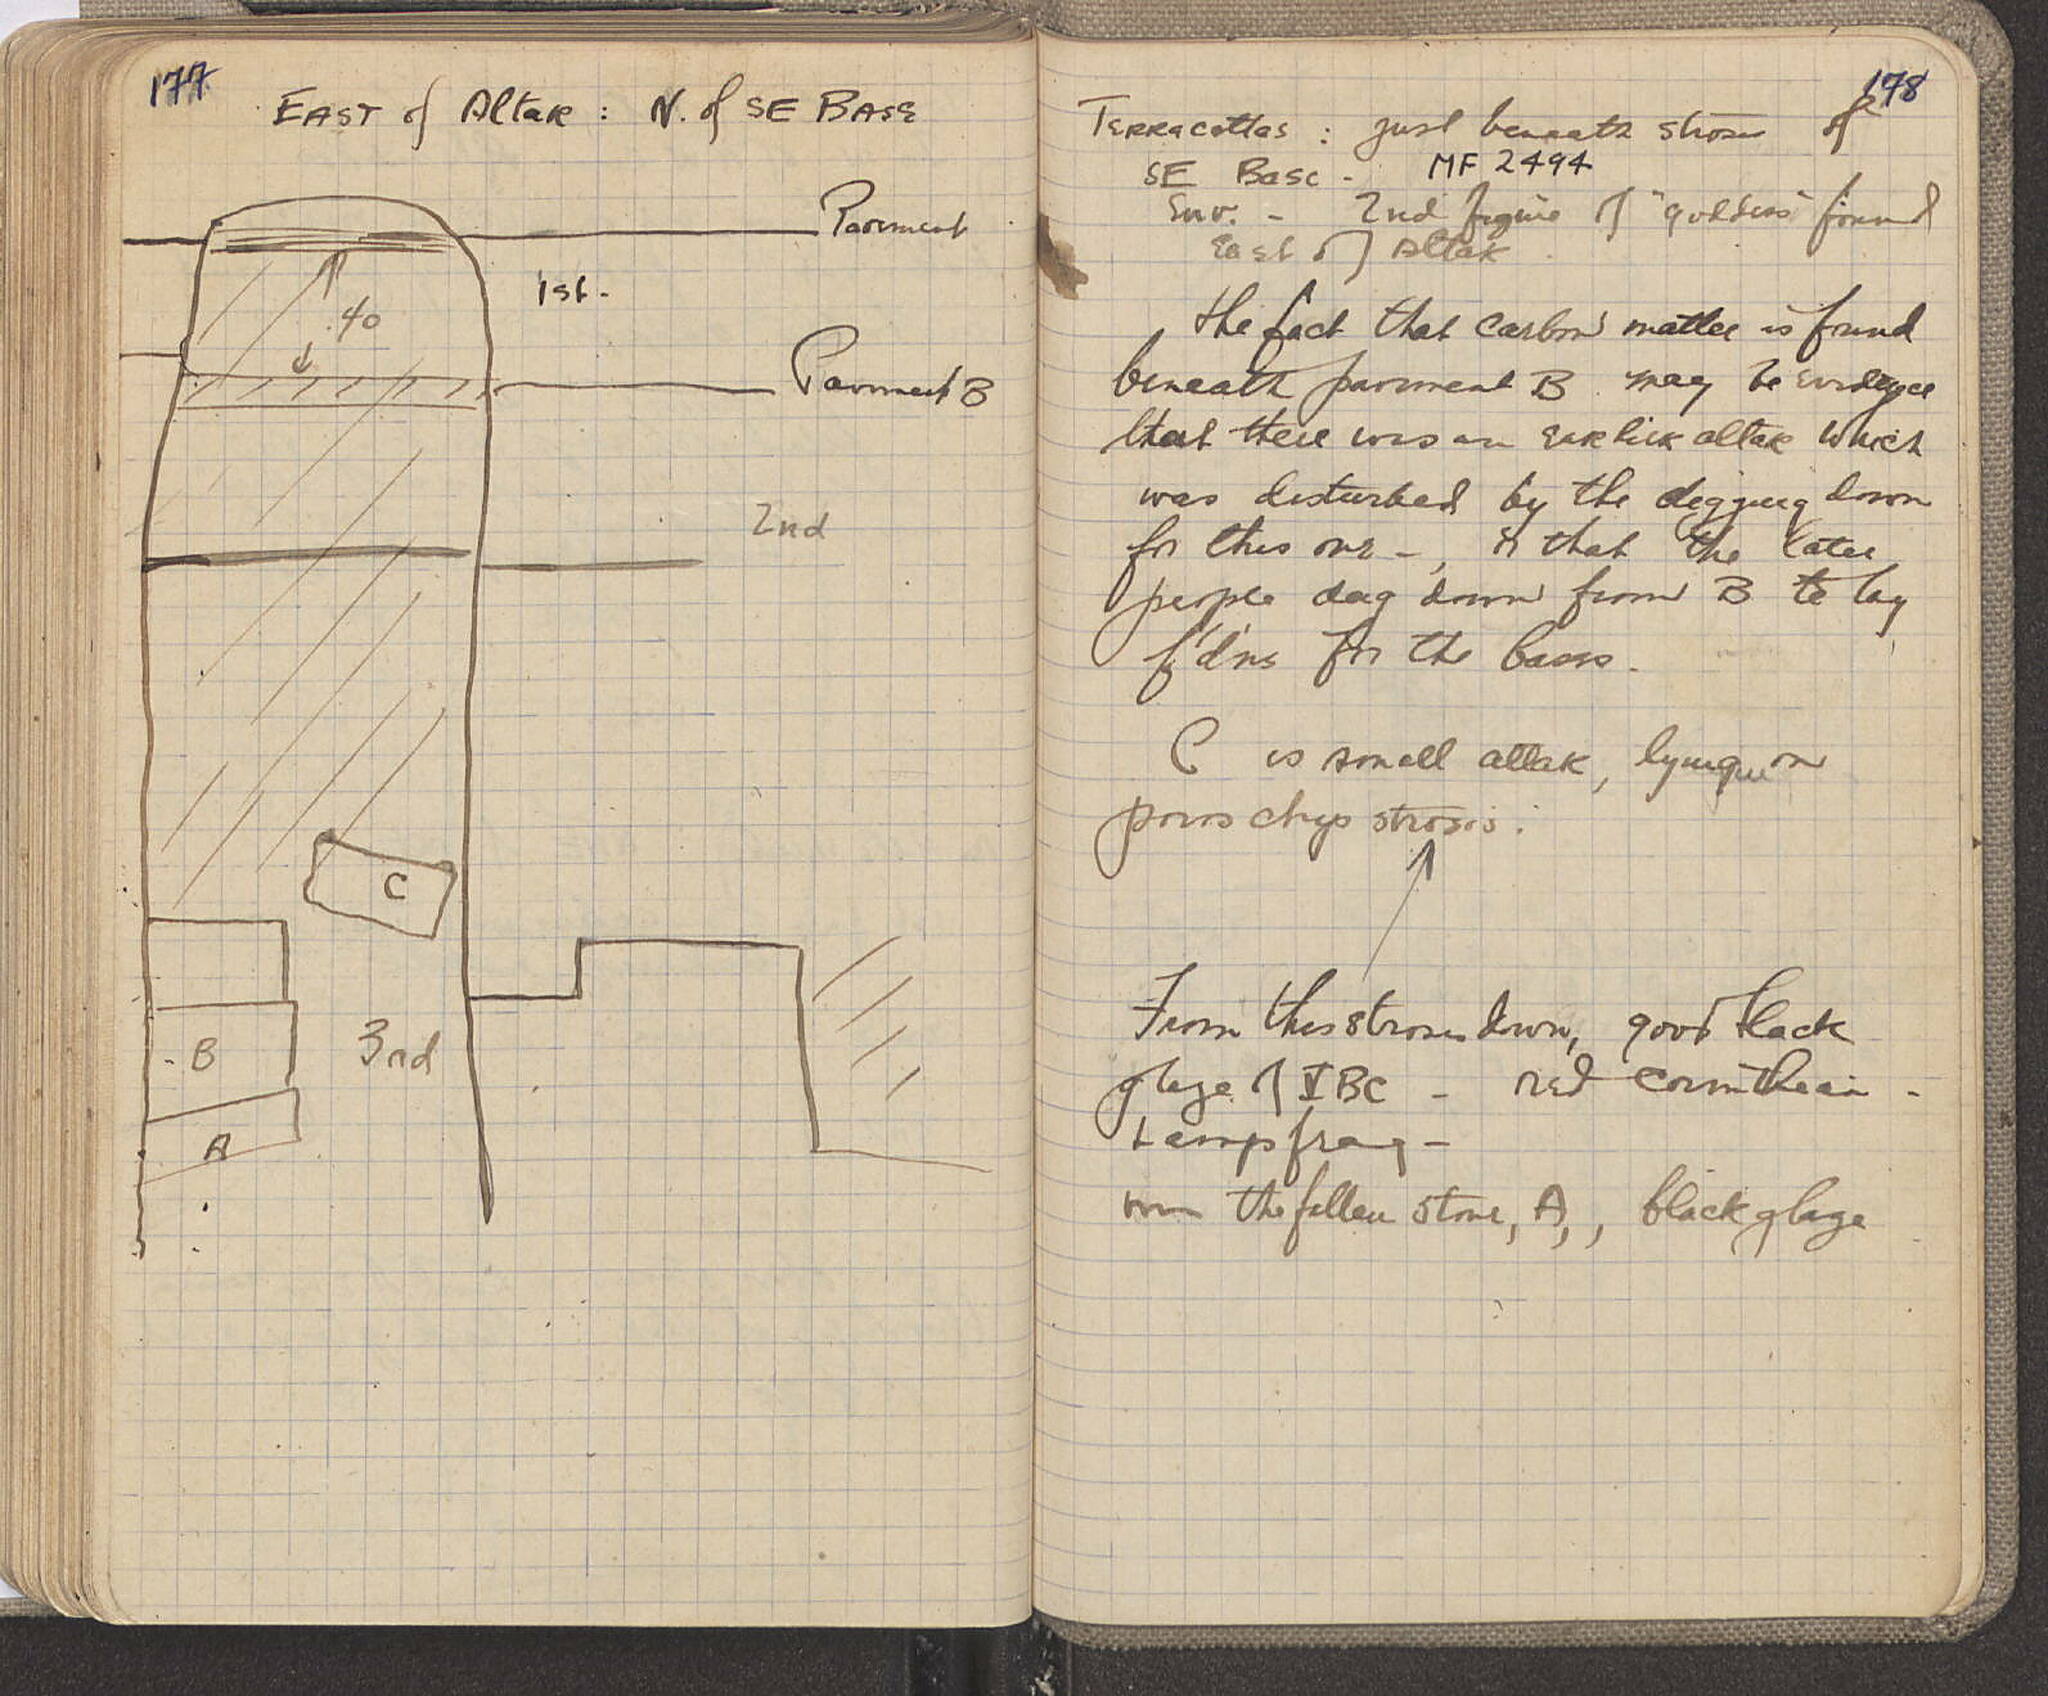 177
EAST of Altar: N. of SE BASE
Pavement
1st.
.40
Pavement B
2nd
C
B
3rd
A
178
Terracottas: just beneath stroses of
SE Base - MF 2494
Env. - 2nd figure of "goddess" found
East of Altar
The fact that carbon matter is found
beneath pavement B may be evidence
that there was an earlier altar which
was disturbed by the digging down
for this one -, or that the later
people dug down from B to lay
f'dns for the bases.
C is small altar, lying on
poros chip strosis.
From this strosis down, good black
glaze of V BC - red Corinthian -
Lamp frag -
the fallen stone, A, black glaze